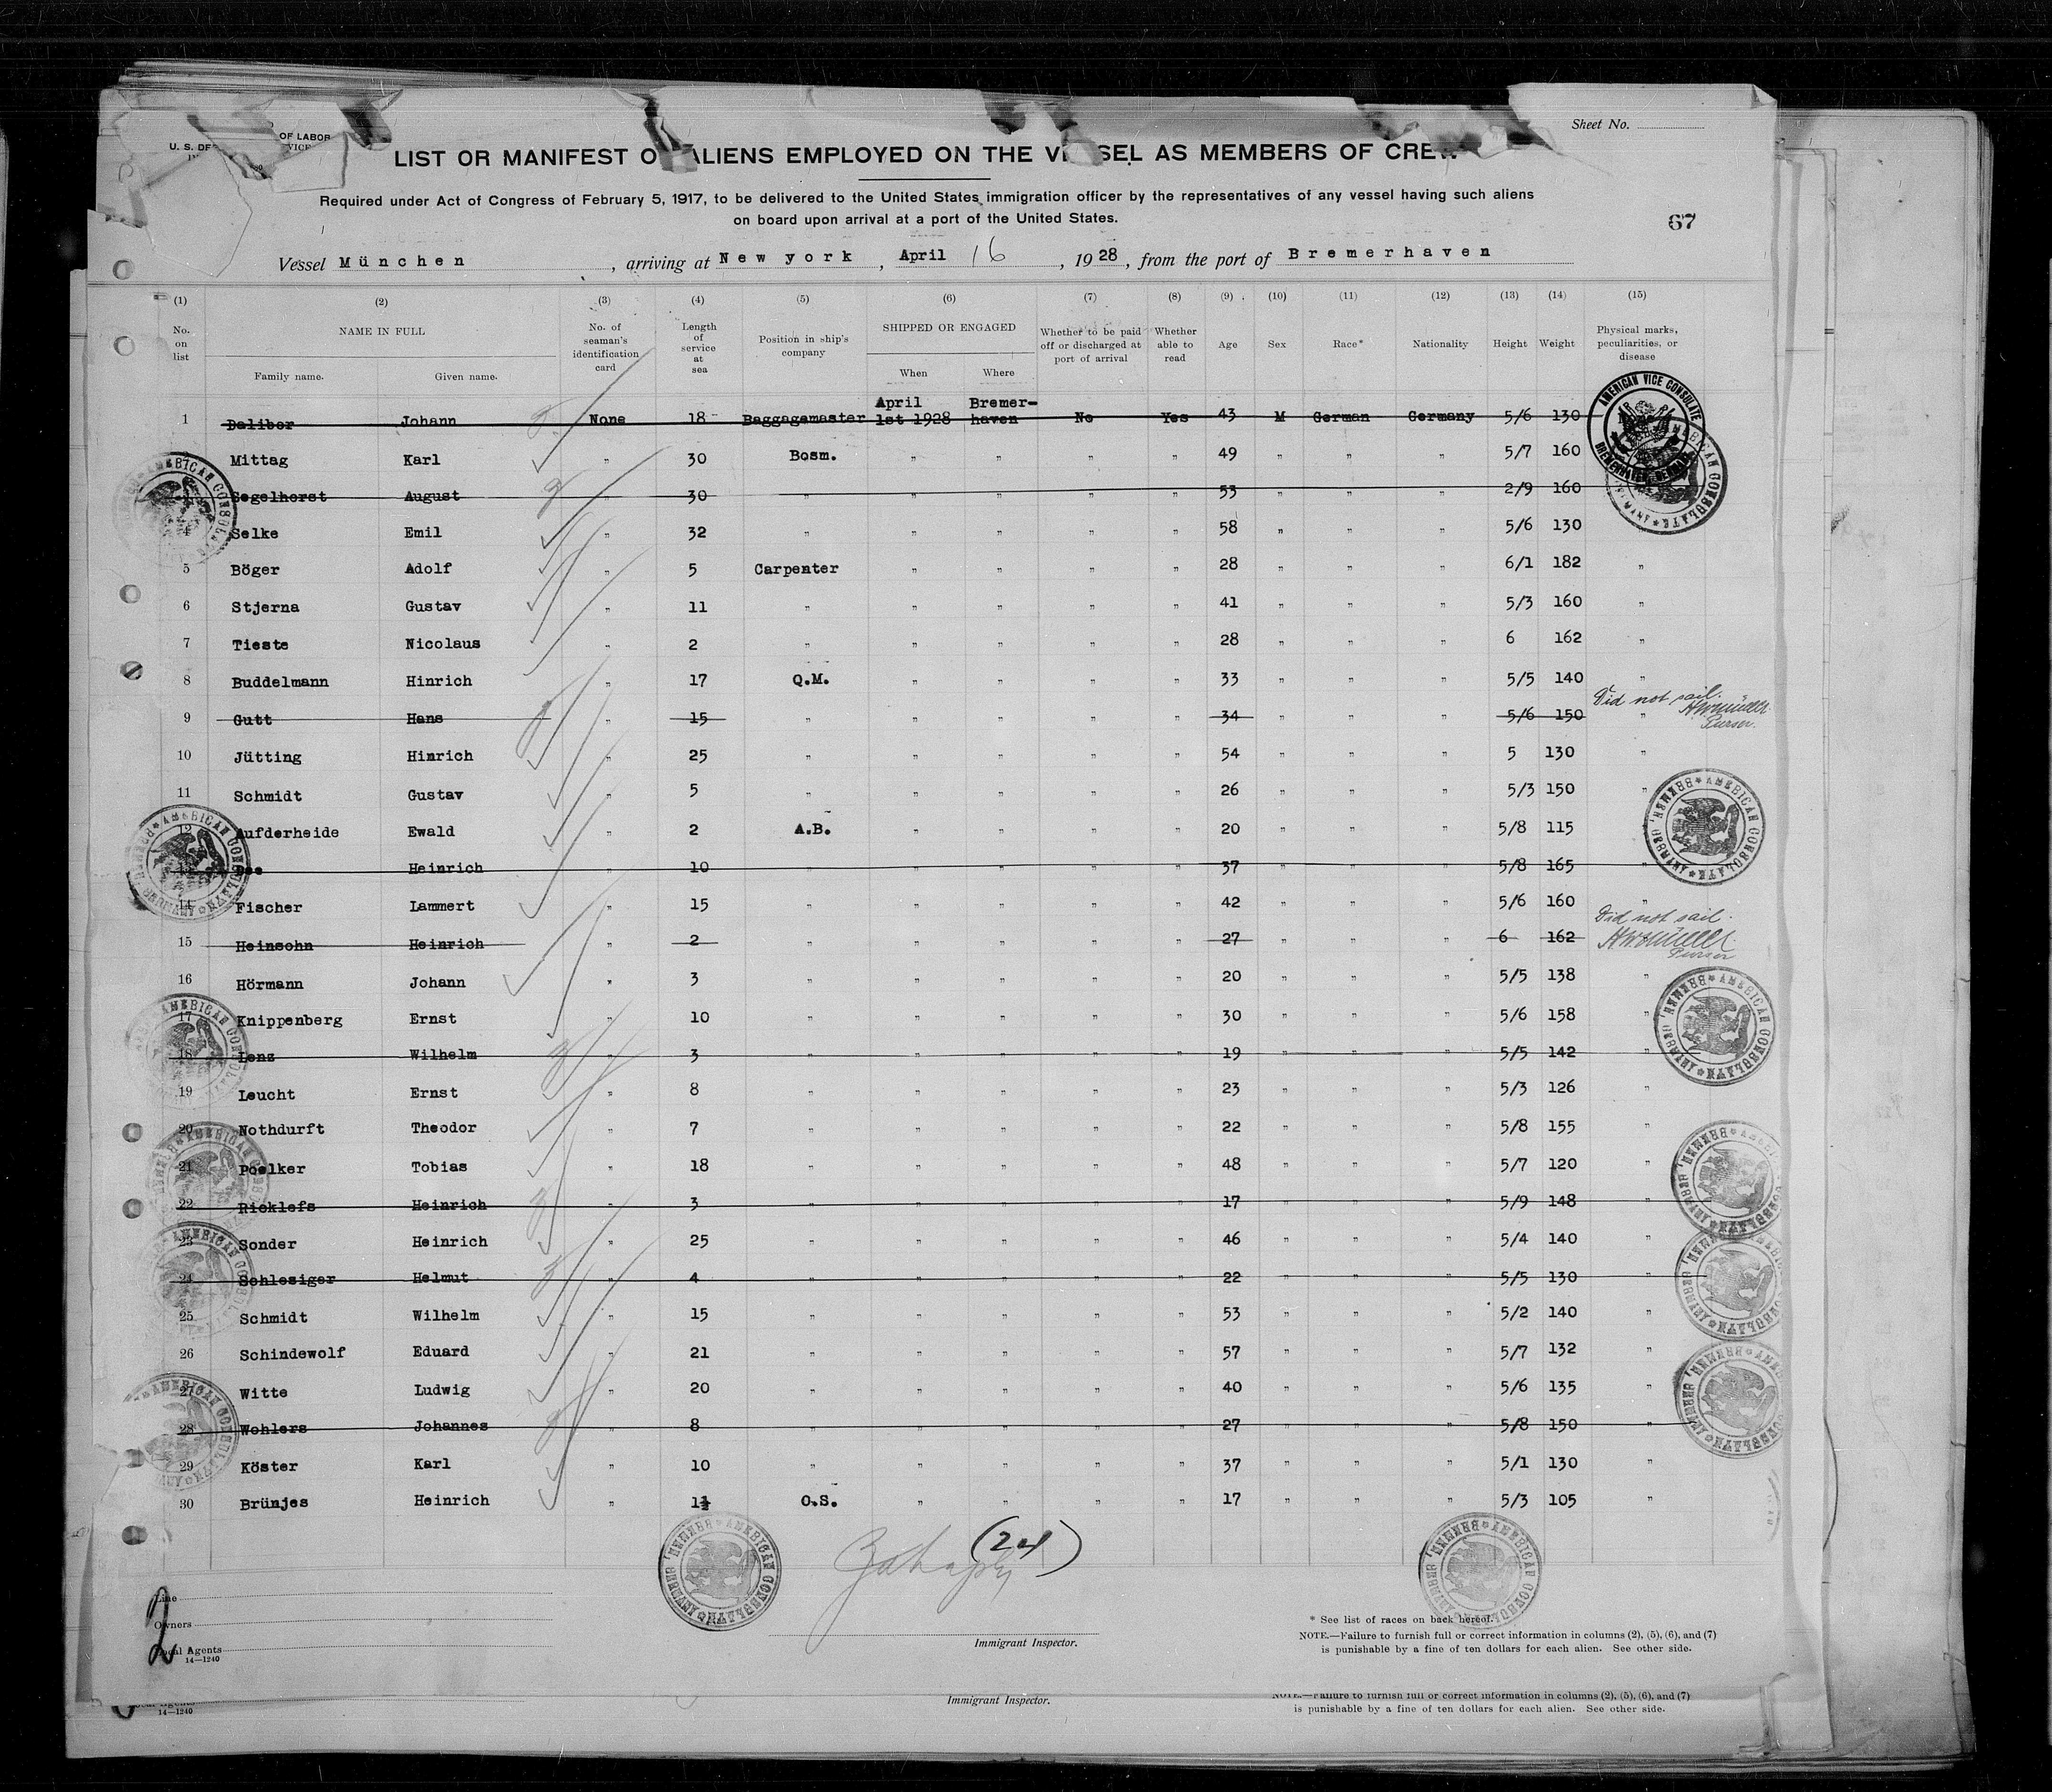 Sheet No.
OF LABOR
U. S. DE
LIST OR MANIFEST O ALIENS EMPLOYED ON THE VESSEL AS MEMBERS OF CREW
Required under Act of Congress of February 5, 1917, to be delivered to the United States immigration officer by the representatives of any vessel having such aliens
on board upon arrival at a port of the United States.
67
Vessel München , arriving at New york , April 16 , 1928 , from the port of Bremerhaven
(1) (2) (3) (4) (5) (6) (7) (8) (9) (10) (11) (12) (13) (14) (15)
No. on list NAME IN FULL No. of seaman's identification card Length of service at sea Position in ship's company SHIPPED OR ENGAGED Whether to be paid off or discharged at port of arrival Whether able to read Age Sex Race* Nationality Height Weight Physical marks, peculiarities, or disease
Family name. Given name. When Where
1 Dalibor Johann None 18 Baggagemaster April 1st 1928 Bremer-haven No Yes 43 M German Germany 5/6 130
Mittag Karl " 30 Bosm. " " " " 49 " " " 5/7 160
Segelhorst August " 30 " " " " " 53 " " " 2/9 160
4 Selke Emil " 32 " " " " " 58 " " " 5/6 130
5 Böger Adolf " 5 Carpenter " " " " 28 " " " 6/1 182 "
6 Stjerna Gustav " 11 " " " " " 41 " " " 5/3 160 "
7 Tieste Nicolaus " 2 " " " " " 28 " " " 6 162 "
8 Buddelmann Hinrich " 17 Q.M. " " " " 33 " " " 5/5 140 "
9 Gutt Hans " 15 " " " " " 34 " " " 5/6 150 " Did not sail. HWMüller Purser.
10 Jütting Hinrich " 25 " " " " " 54 " " " 5 130 "
11 Schmidt Gustav " 5 " " " " " 26 " " " 5/3 150 "
12 Aufderheide Ewald " 2 A.B. " " " " 20 " " " 5/8 115
Heinrich " 10 " " " " " 37 " " " 5/8 165 "
14 Fischer Lammert " 15 " " " " " 42 " " " 5/6 160 "
15 Heinsohn Heinrich " 2 " " " " " 27 " " " 6 162 Did not sail. HWMüller Purser
16 Hörmann Johann " 3 " " " " " 20 " " " 5/5 138 "
17 Knippenberg Ernst " 10 " " " " " 30 " " " 5/6 158 "
18 Lenz Wilhelm " 3 " " " " " 19 " " " 5/5 142 "
19 Leucht Ernst " 8 " " " " " 23 " " " 5/3 126 "
20 Nothdurft Theodor " 7 " " " " " 22 " " " 5/8 155 "
21 Poelker Tobias " 18 " " " " " 48 " " " 5/7 120 "
22 Ricklefs Heinrich " 3 " " " " " 17 " " " 5/9 148 "
23 Sonder Heinrich " 25 " " " " " 46 " " " 5/4 140 "
24 Schlesiger Helmut " 4 " " " " " 22 " " " 5/5 130 "
25 Schmidt Wilhelm " 15 " " " " " 53 " " " 5/2 140 "
26 Schindewolf Eduard " 21 " " " " " 57 " " " 5/7 132 "
27 Witte Ludwig " 20 " " " " " 40 " " " 5/6 135 "
28 Wohlers Johannes " 8 " " " " " 27 " " " 5/8 150 "
29 Köster Karl " 10 " " " " " 37 " " " 5/1 130 "
30 Brünjes Heinrich " 1½ O.S. " " " " 17 " " " 5/3 105 "
AMERICAN VICE CONSULATE
AMERICAN CONSULATE BREMEN, GERMANY
(24)
Line
Owners
Local Agents
14—1240
2
Immigrant Inspector.
* See list of races on back hereof.
NOTE.—Failure to furnish full or correct information in columns (2), (5), (6), and (7)
is punishable by a fine of ten dollars for each alien. See other side.
Immigrant Inspector.
14—1240
NOTE.—Failure to furnish full or correct information in columns (2), (5), (6), and (7)
is punishable by a fine of ten dollars for each alien. See other side.